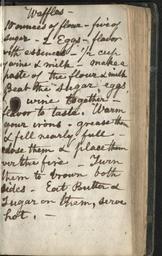 Waffles -
10 ounces of flour - five of
sugar - 2 Eggs - flavor
with essences - ½ cup
wine & milk - make a
paste of the flour & milk
Beat the sugar eggs
& wine together
flavor to taste. Warm
your irons - grease them
& fill nearly full -
close them & place them
over the fire. Turn
them to brown both
sides - Eat Butter &
Sugar on them, serve
hot. -